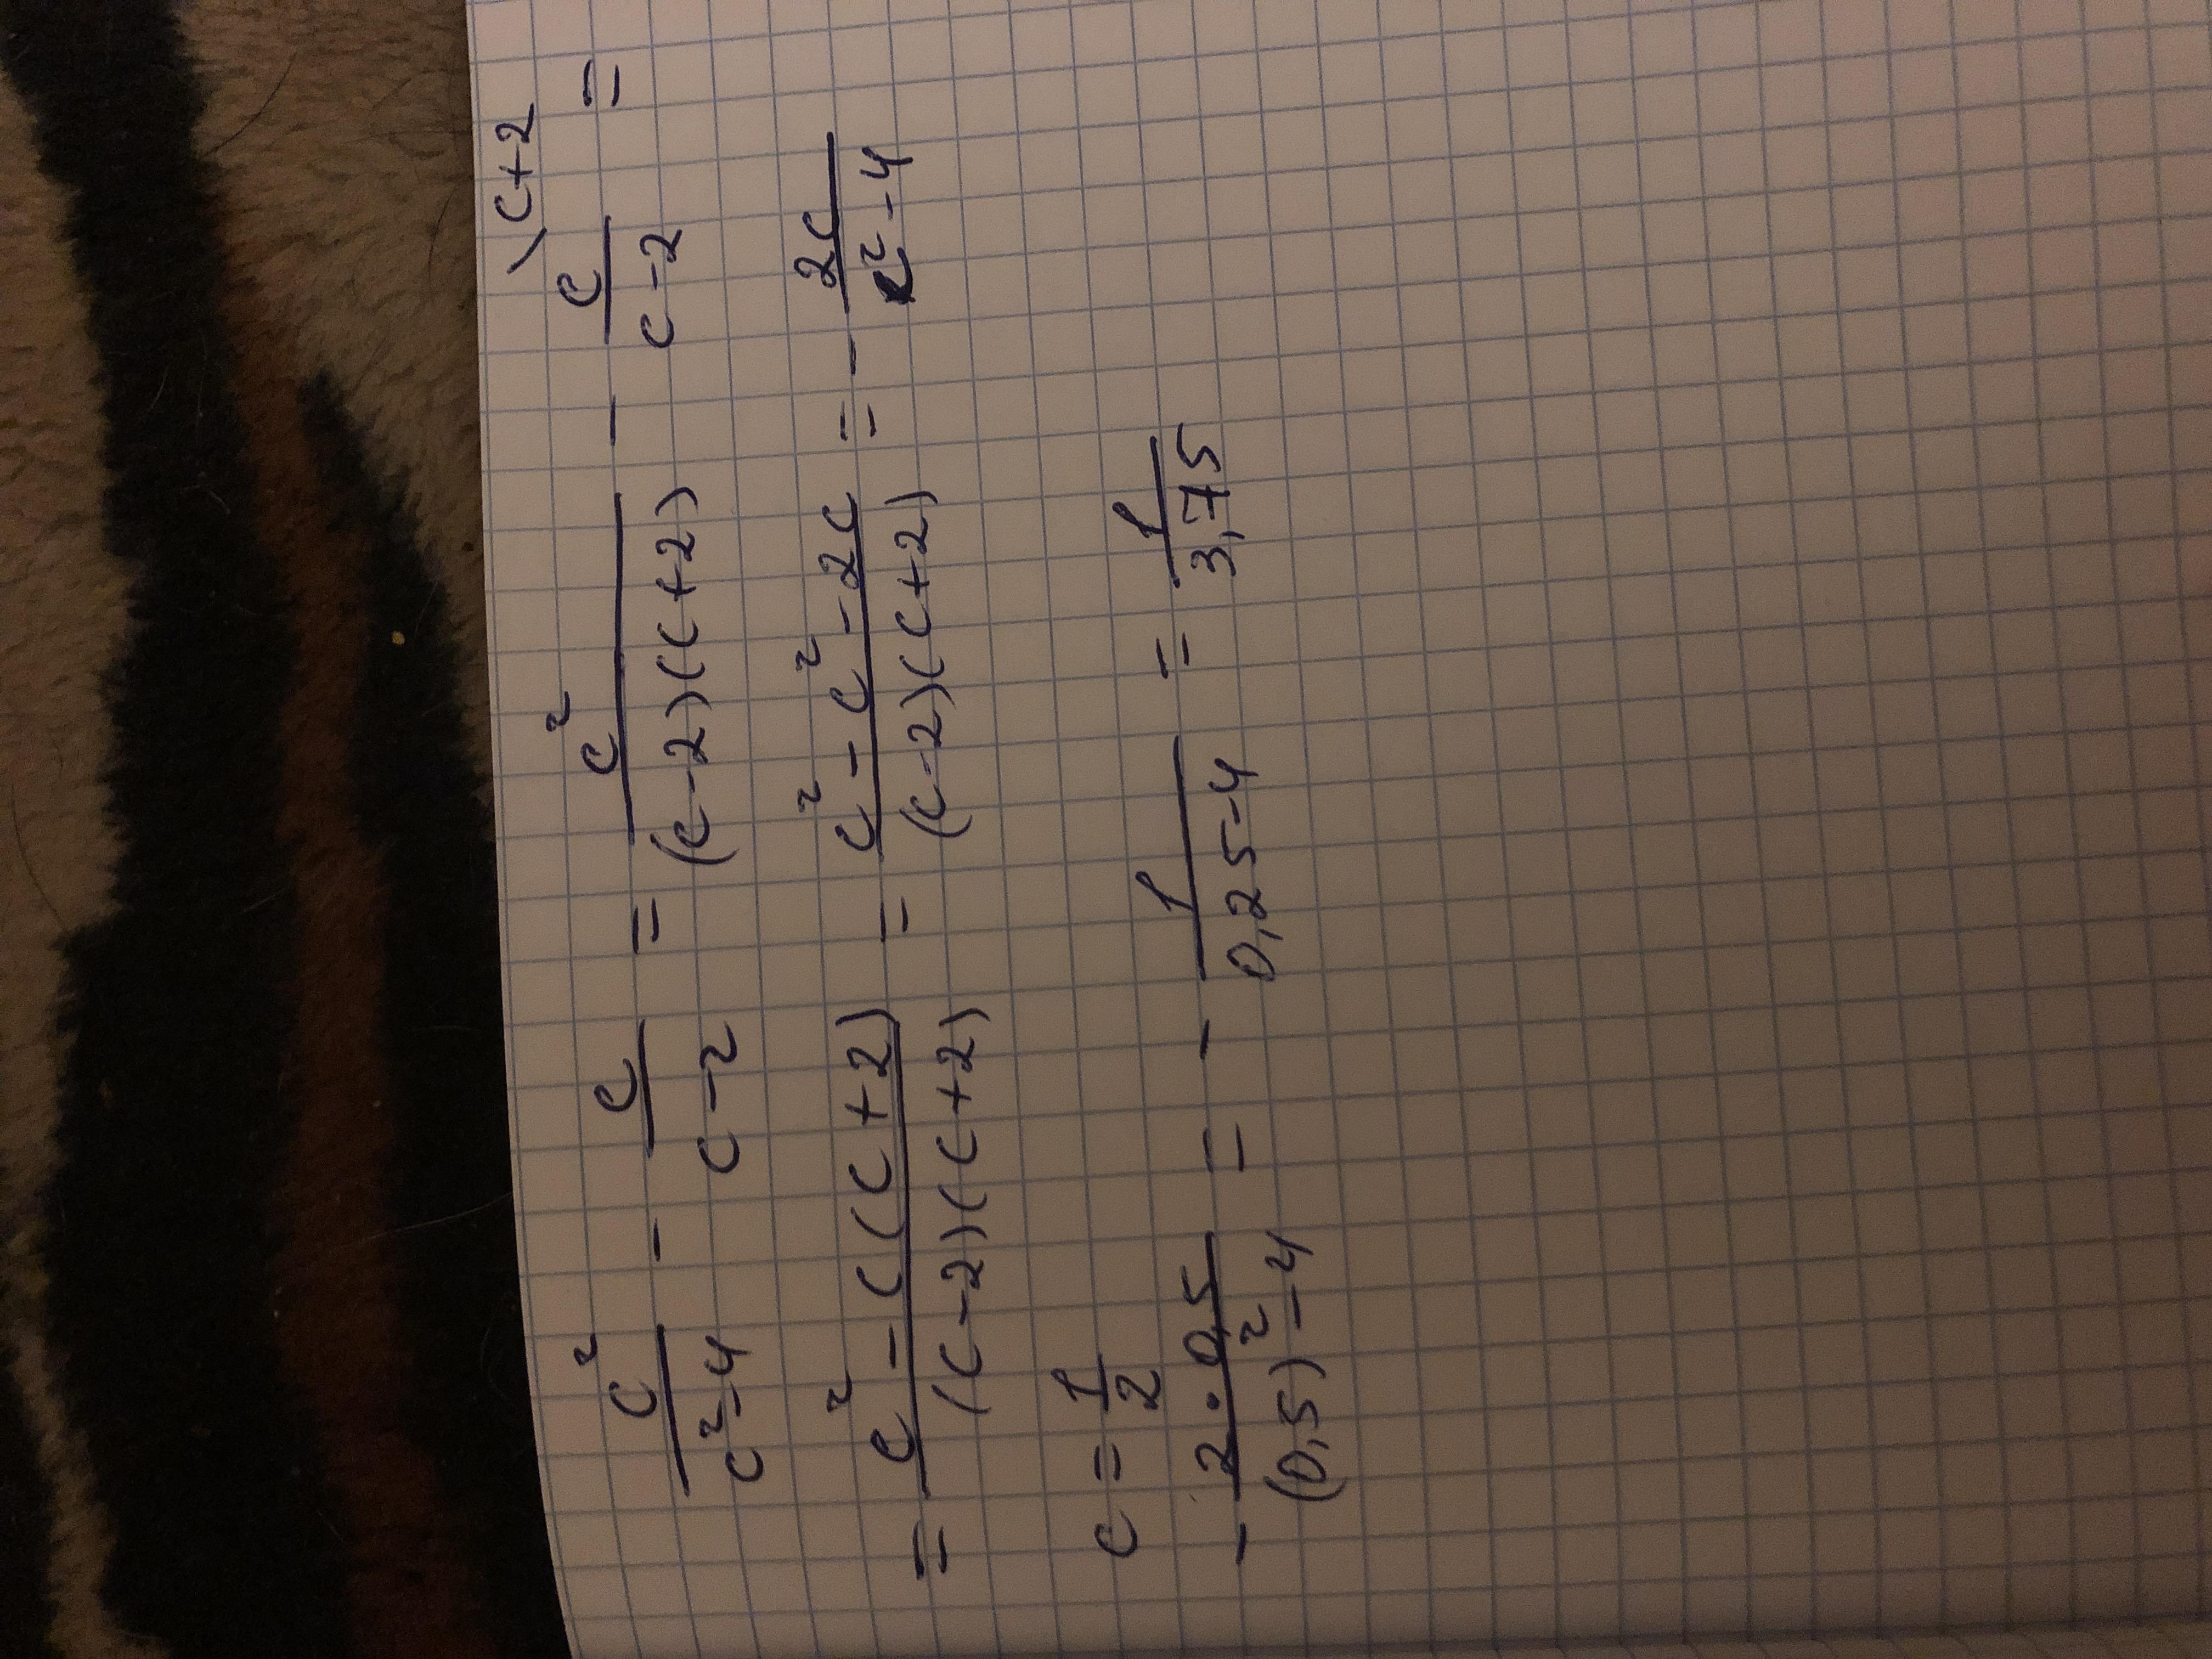 \c+2
c²/(c²-4) - c/(c-2) = c²/((c-2)(c+2)) - c/(c-2) =
= (c²-c(c+2))/((c-2)(c+2)) = (c²-c²-2c)/((c-2)(c+2)) = - 2c/(c²-4)
c = 1/2
- (2·0,5)/((0,5)²-4) = - 1/(0,25-4) = 1/3,75